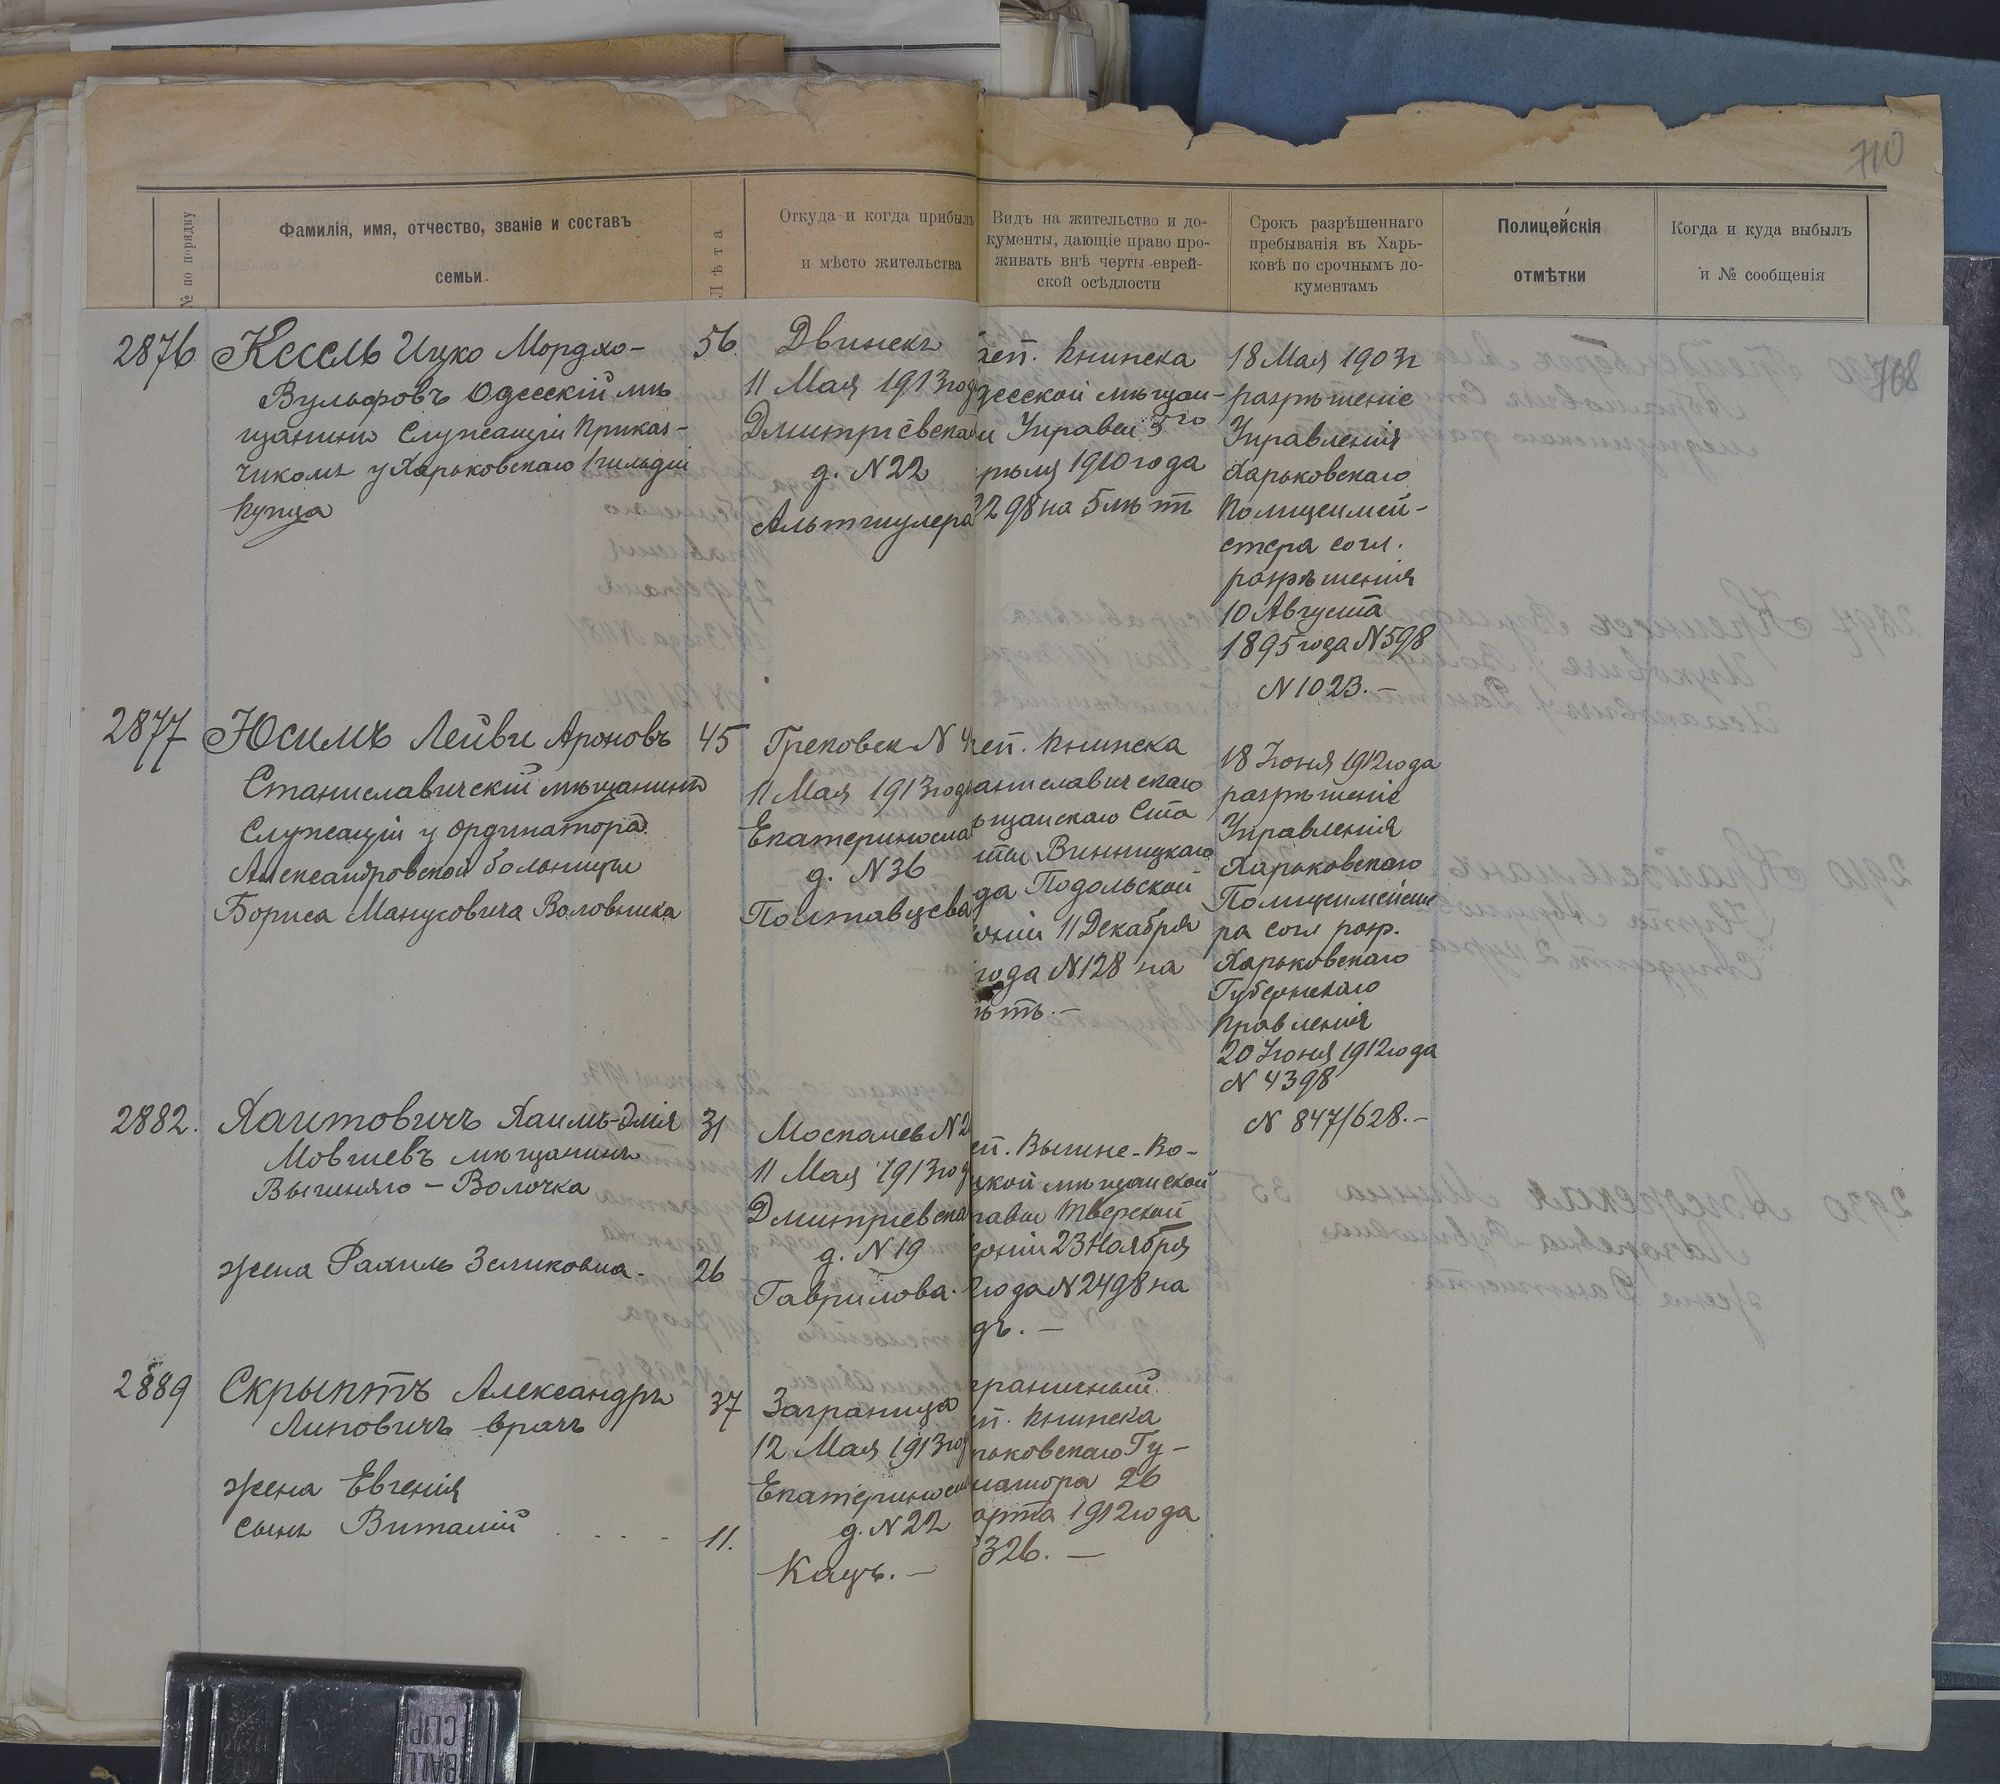 710
№ по порядку
Фамилія, имя, отчество, званіе и составъ
семьи.
Лѣта
Откуда и когда прибылъ
и мѣсто жительства
Видъ на жительство и до-
кументы, дающіе право про-
живать внѣ черты еврей-
ской осѣдлости
Срокъ разрѣшеннаго
пребыванія въ Харь-
ковѣ по срочнымъ до-
кументамъ
Полицейскія
отмѣтки
Когда и куда выбылъ
и № сообщенія
708
2876
Кесель Ицко Мордхо-
Вульфовъ Одесскій мѣ
щанинъ Служащій Приказ-
чикомъ у Харьковскаго 1 гильдіи
Купца
56.
Двинскъ
11 Мая 1913 год
Дмитріевска
д. N 22
Альтшулера
Книжка
десской мѣщан-
и Управы 5го
рѣля 1910 года
2298 на 5 лѣтъ
18 Мая 1903 г
разрѣшеніе
Управленія
Харьковскаго
Полицеймей-
стера согл.
разрѣшенія
10 Августа
1895 года N 598
N 1023. –
2877
Юсимъ Лейви Ароновъ
Станиславичскій мѣщанинъ
Служащій у ординатора
Александровской больницы
Бориса Манусовича Воловника
45
Грековск N 4
11 Мая 1913 год
Екатериносла
д. N 36
Полтавцева
еп. Книжка
аниславичскаго
ѣщанскаго Ста
сты Винницкаго
да Подольской
рніи 11 Декабря
года N 128 на
ѣтъ. –
18 Іюня 1912 года
разрѣшеніе
Управленія
Харьковскаго
Полицеймейсте
ра согл разр.
Харьковскаго
Губернскаго
Правленія
20 Іюня 1912 года
N 4398
N 847/628. –
2882.
Хаитовичъ Хаимъ-Элія
Мовшевъ мѣщанинъ
Вышняго – Волочка
жена Рахиль Зеликовна.
31
26
Москалев N 2
11 Мая 1913 год
Дмитріевска
д. N 19
Гаврилова.
еп. Вышне-Во-
цкой мѣщанской
равы Тверской
рніи 23 Ноября
2 года N 2498 на
дъ. –
2889
Скрыптъ Александръ
Липовичъ врачъ
жена Евгенія
сынъ Виталій
37
11.
Заграница
12 Мая 1913 год
Екатериносл
д. N 22
Кацъ. –
граничный
п. Книжка
рьковскаго Гу-
натора 26
арта 1912 года
326. –
BALL
CLIP